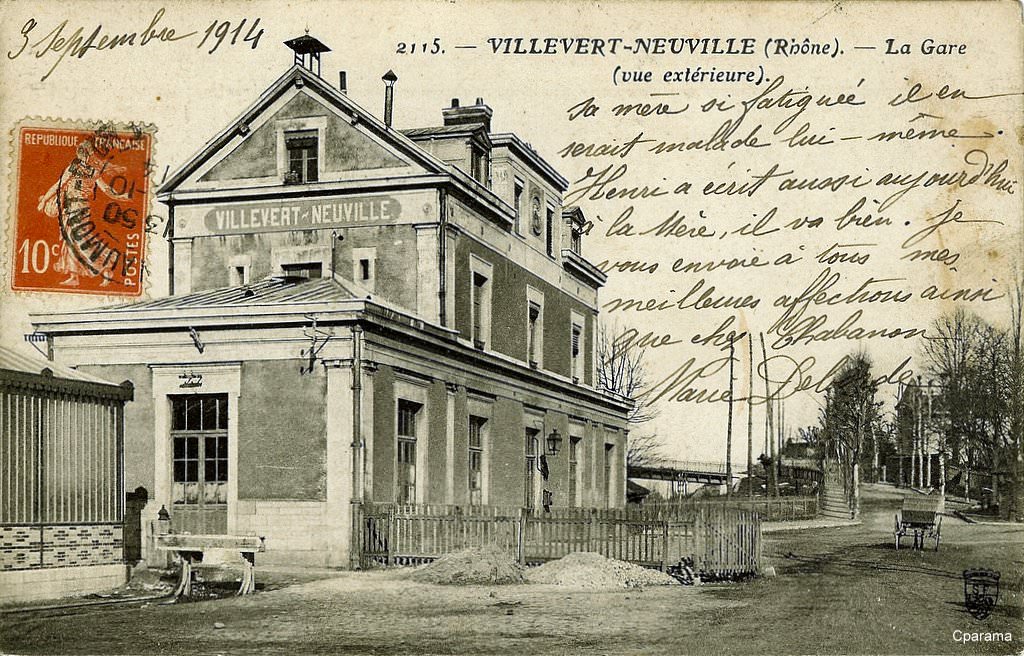 3 Septembre 1914
2115. — VILLEVERT-NEUVILLE (Rhône). — La Gare
(vue extérieure).
REPUBLIQUE FRANÇAISE
10c
POSTES
VILLEVERT-NEUVILLE
sa mère si fatiguée il en
serait malade lui-même.
Henri a écrit aussi aujourd'hui
à la Mère, il va bien. Je
vous envoie à tous mes
meilleures affections ainsi
que cher Chabanon
Marie
Cparama